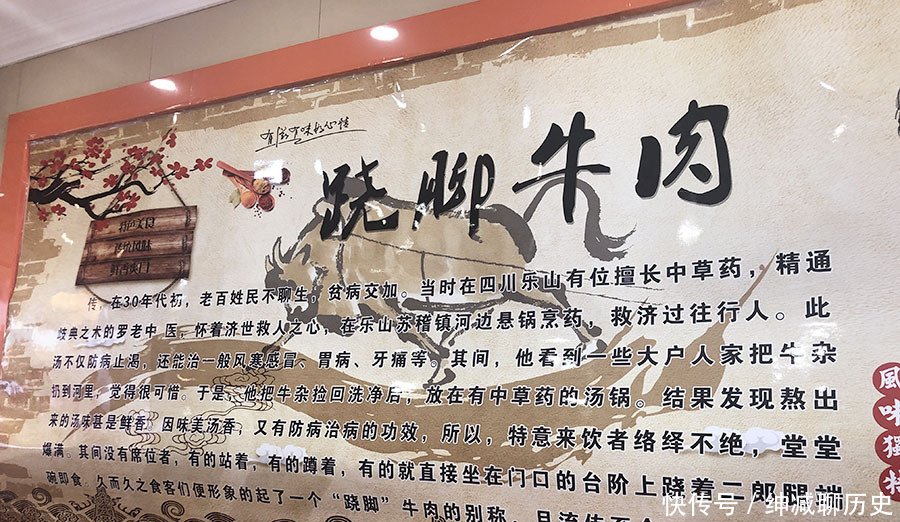 有滋有味好心情
跷脚牛肉
特色美食
传，在30年代初，老百姓民不聊生，贫病交加。当时在四川乐山有位擅长中草药，精通
歧典之术的罗老中医，怀着济世救人之心，在乐山苏稽镇河边悬锅烹药，救济过往行人。此
汤不仅防病止渴，还能治一般风寒感冒、胃病、牙痛等。其间，他看到一些大户人家把牛杂
扔到河里，觉得很可惜。于是、他把牛杂捡回洗净后，放在有中草药的汤锅。结果发现熬出
来的汤味甚是鲜香。因味美汤香，又有防病治病的功效，所以，特意来饮者络绎不绝，堂堂
爆满。其间没有席位者，有的站着，有的蹲着，有的就直接坐在门口的台阶上跷着二郎腿端
碗即食。久而久之食客们便形象的起了一个“跷脚”牛肉的别称，且流传至今
風味獨特
快传号 / 绅减聊历史